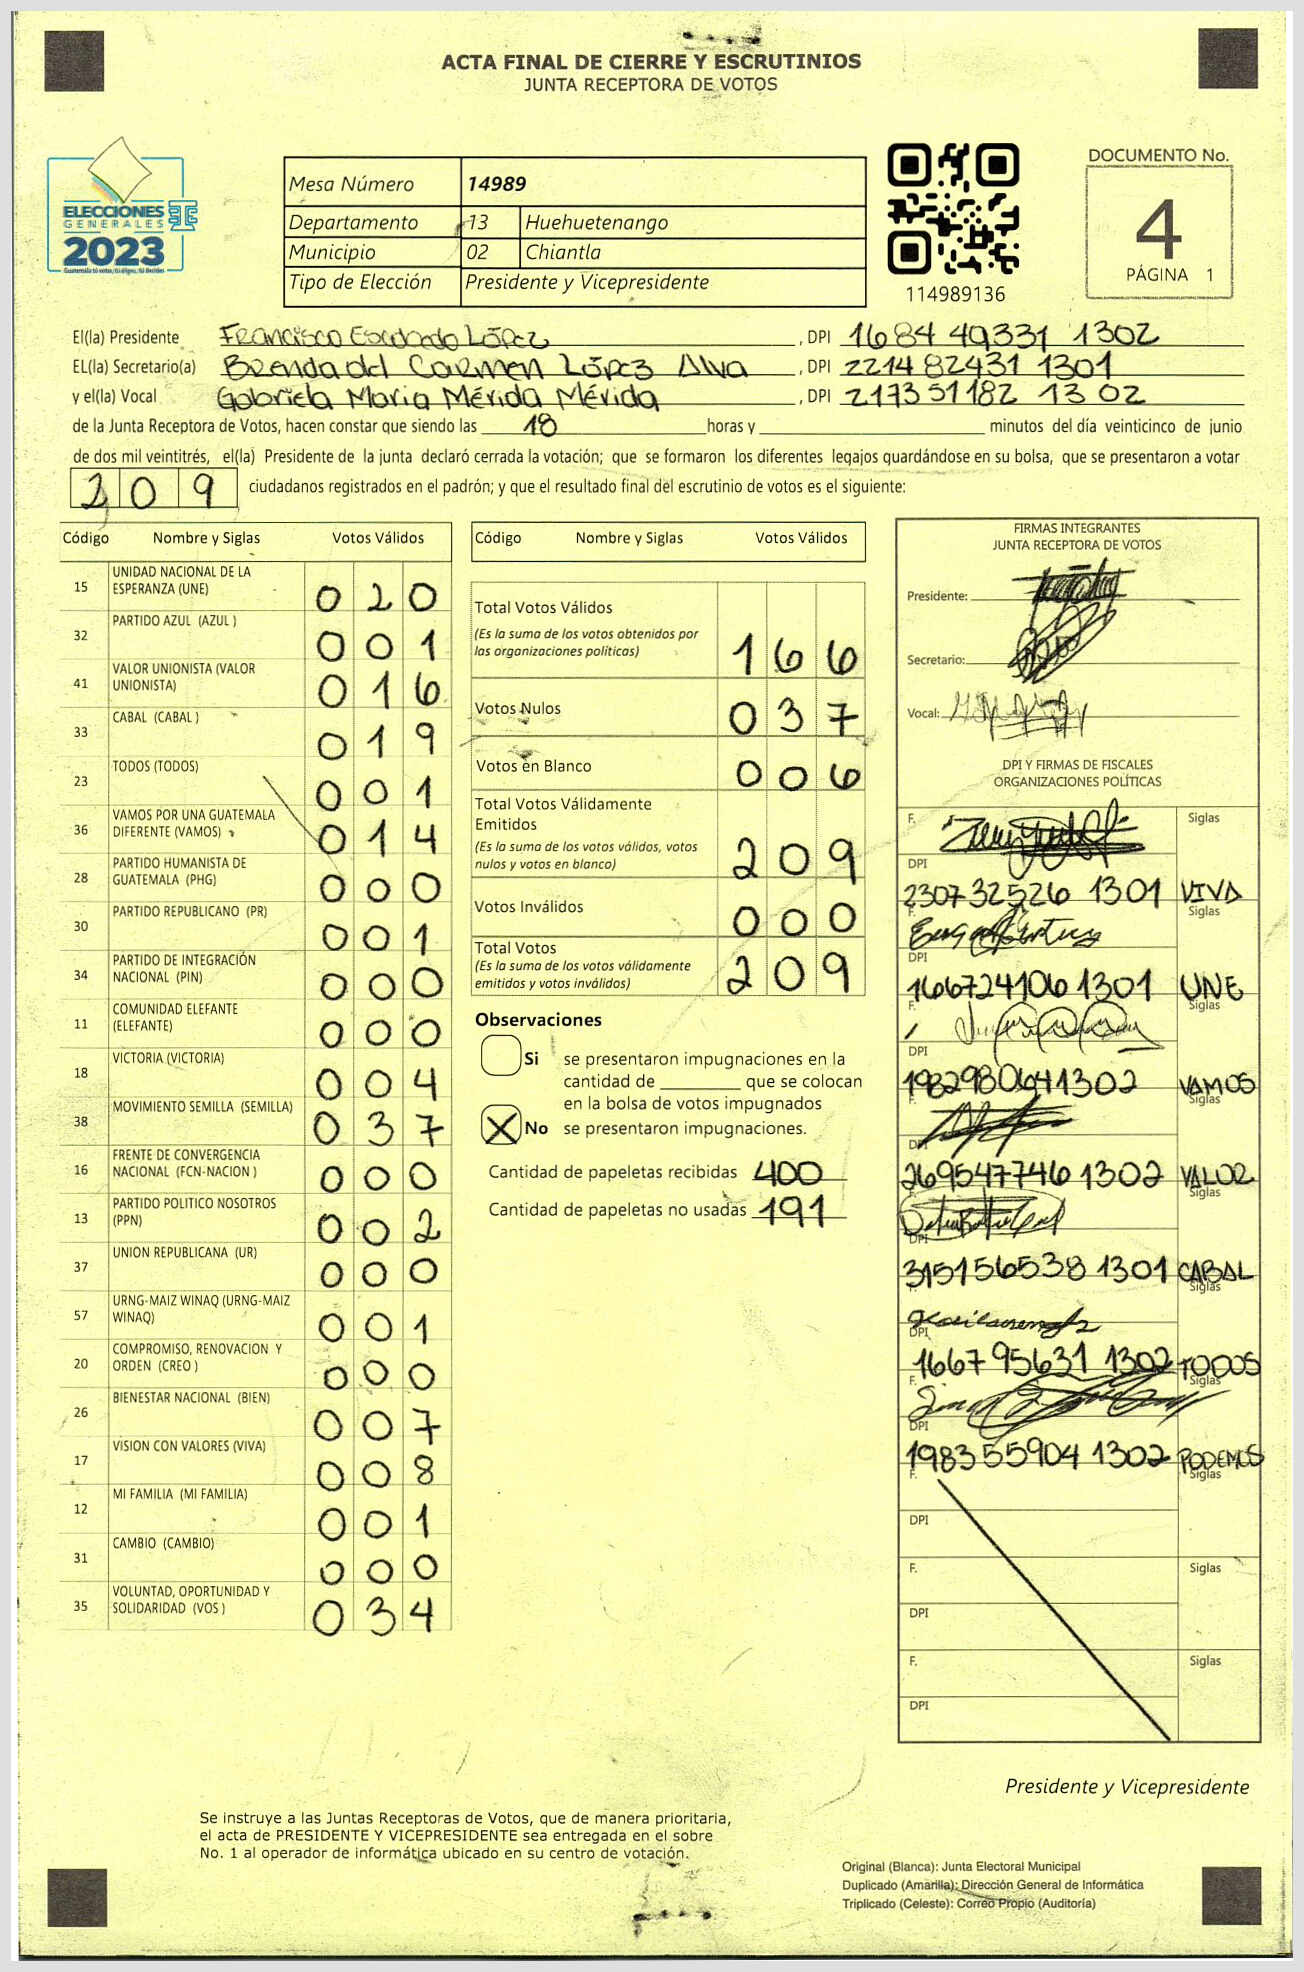 ACTA FINAL DE CIERRE Y ESCRUTINIOS
JUNTA RECEPTORA DE VOTOS
ELECCIONES
GENERALES
2023
Mesa Número 14989
Departamento 13 Huehuetenango
Municipio 02 Chiantla
Tipo de Elección Presidente y Vicepresidente
114989136
DOCUMENTO No.
4
PÁGINA 1
El(la) Presidente Francisco Escobedo López, DPI 1684 49331 1302
EL(la) Secretario(a) Brenda del Carmen López Alva, DPI 2214 82431 1301
y el(la) Vocal Gabriela Maria Mérida Mérida, DPI 2173 51182 1302
de la Junta Receptora de Votos, hacen constar que siendo las 18 horas y minutos del día veinticinco de junio
de dos mil veintitrés, el(la) Presidente de la junta declaró cerrada la votación; que se formaron los diferentes legajos guardándose en su bolsa, que se presentaron a votar
209 ciudadanos registrados en el padrón; y que el resultado final del escrutinio de votos es el siguiente:
Código Nombre y Siglas Votos Válidos
15 UNIDAD NACIONAL DE LA ESPERANZA (UNE) 020
32 PARTIDO AZUL (AZUL ) 001
41 VALOR UNIONISTA (VALOR UNIONISTA) 016
33 CABAL (CABAL ) 019
23 TODOS (TODOS) 001
36 VAMOS POR UNA GUATEMALA DIFERENTE (VAMOS) 014
28 PARTIDO HUMANISTA DE GUATEMALA (PHG) 000
30 PARTIDO REPUBLICANO (PR) 001
34 PARTIDO DE INTEGRACIÓN NACIONAL (PIN) 000
11 COMUNIDAD ELEFANTE (ELEFANTE) 000
18 VICTORIA (VICTORIA) 004
38 MOVIMIENTO SEMILLA (SEMILLA) 037
16 FRENTE DE CONVERGENCIA NACIONAL (FCN-NACION ) 000
13 PARTIDO POLITICO NOSOTROS (PPN) 002
37 UNION REPUBLICANA (UR) 000
57 URNG-MAIZ WINAQ (URNG-MAIZ WINAQ) 001
20 COMPROMISO, RENOVACION Y ORDEN (CREO ) 000
26 BIENESTAR NACIONAL (BIEN) 007
17 VISION CON VALORES (VIVA) 008
12 MI FAMILIA (MI FAMILIA) 001
31 CAMBIO (CAMBIO) 000
35 VOLUNTAD, OPORTUNIDAD Y SOLIDARIDAD (VOS ) 034
Código Nombre y Siglas Votos Válidos
Total Votos Válidos 166
(Es la suma de los votos obtenidos por
las organizaciones políticas)
Votos Nulos 037
Votos en Blanco 006
Total Votos Válidamente
Emitidos 209
(Es la suma de los votos válidos, votos
nulos y votos en blanco)
Votos Inválidos 000
Total Votos 209
(Es la suma de los votos válidamente
emitidos y votos inválidos)
Observaciones
Si se presentaron impugnaciones en la
cantidad de ________ que se colocan
en la bolsa de votos impugnados
X No se presentaron impugnaciones.
Cantidad de papeletas recibidas 400
Cantidad de papeletas no usadas 191
FIRMAS INTEGRANTES
JUNTA RECEPTORA DE VOTOS
Presidente:
Secretario:
Vocal:
DPI Y FIRMAS DE FISCALES
ORGANIZACIONES POLÍTICAS
F. Siglas
DPI
2307 32526 1301 VIVA
F. Siglas
DPI
1667 24106 1301 UNE
F. Siglas
DPI
1982980641302 VAMOS
F. Siglas
DPI
269547746 1302 VALOR
F. Siglas
DPI
3151 56538 1301 CABAL
F. Siglas
DPI
1667 95631 1302 TODOS
F. Siglas
DPI
1983 55904 1302 PODEMOS
F. Siglas
DPI
F. Siglas
DPI
F. Siglas
DPI
Presidente y Vicepresidente
Se instruye a las Juntas Receptoras de Votos, que de manera prioritaria,
el acta de PRESIDENTE Y VICEPRESIDENTE sea entregada en el sobre
No. 1 al operador de informática ubicado en su centro de votación.
Original (Blanca): Junta Electoral Municipal
Duplicado (Amarilla): Dirección General de Informática
Triplicado (Celeste): Correo Propio (Auditoría)